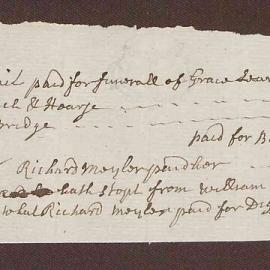 paid for funerall of Grace
& Hearse
paid for
Richard Meyler paid her
hath stopt from William
what Richard Meyler paid for